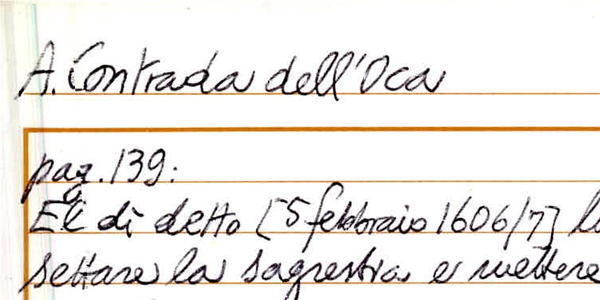 A. Contrada dell'Oca
pag. 139:
E a dì detto [5 febbraio 1606/7] l
settare la sagrestia e mettere